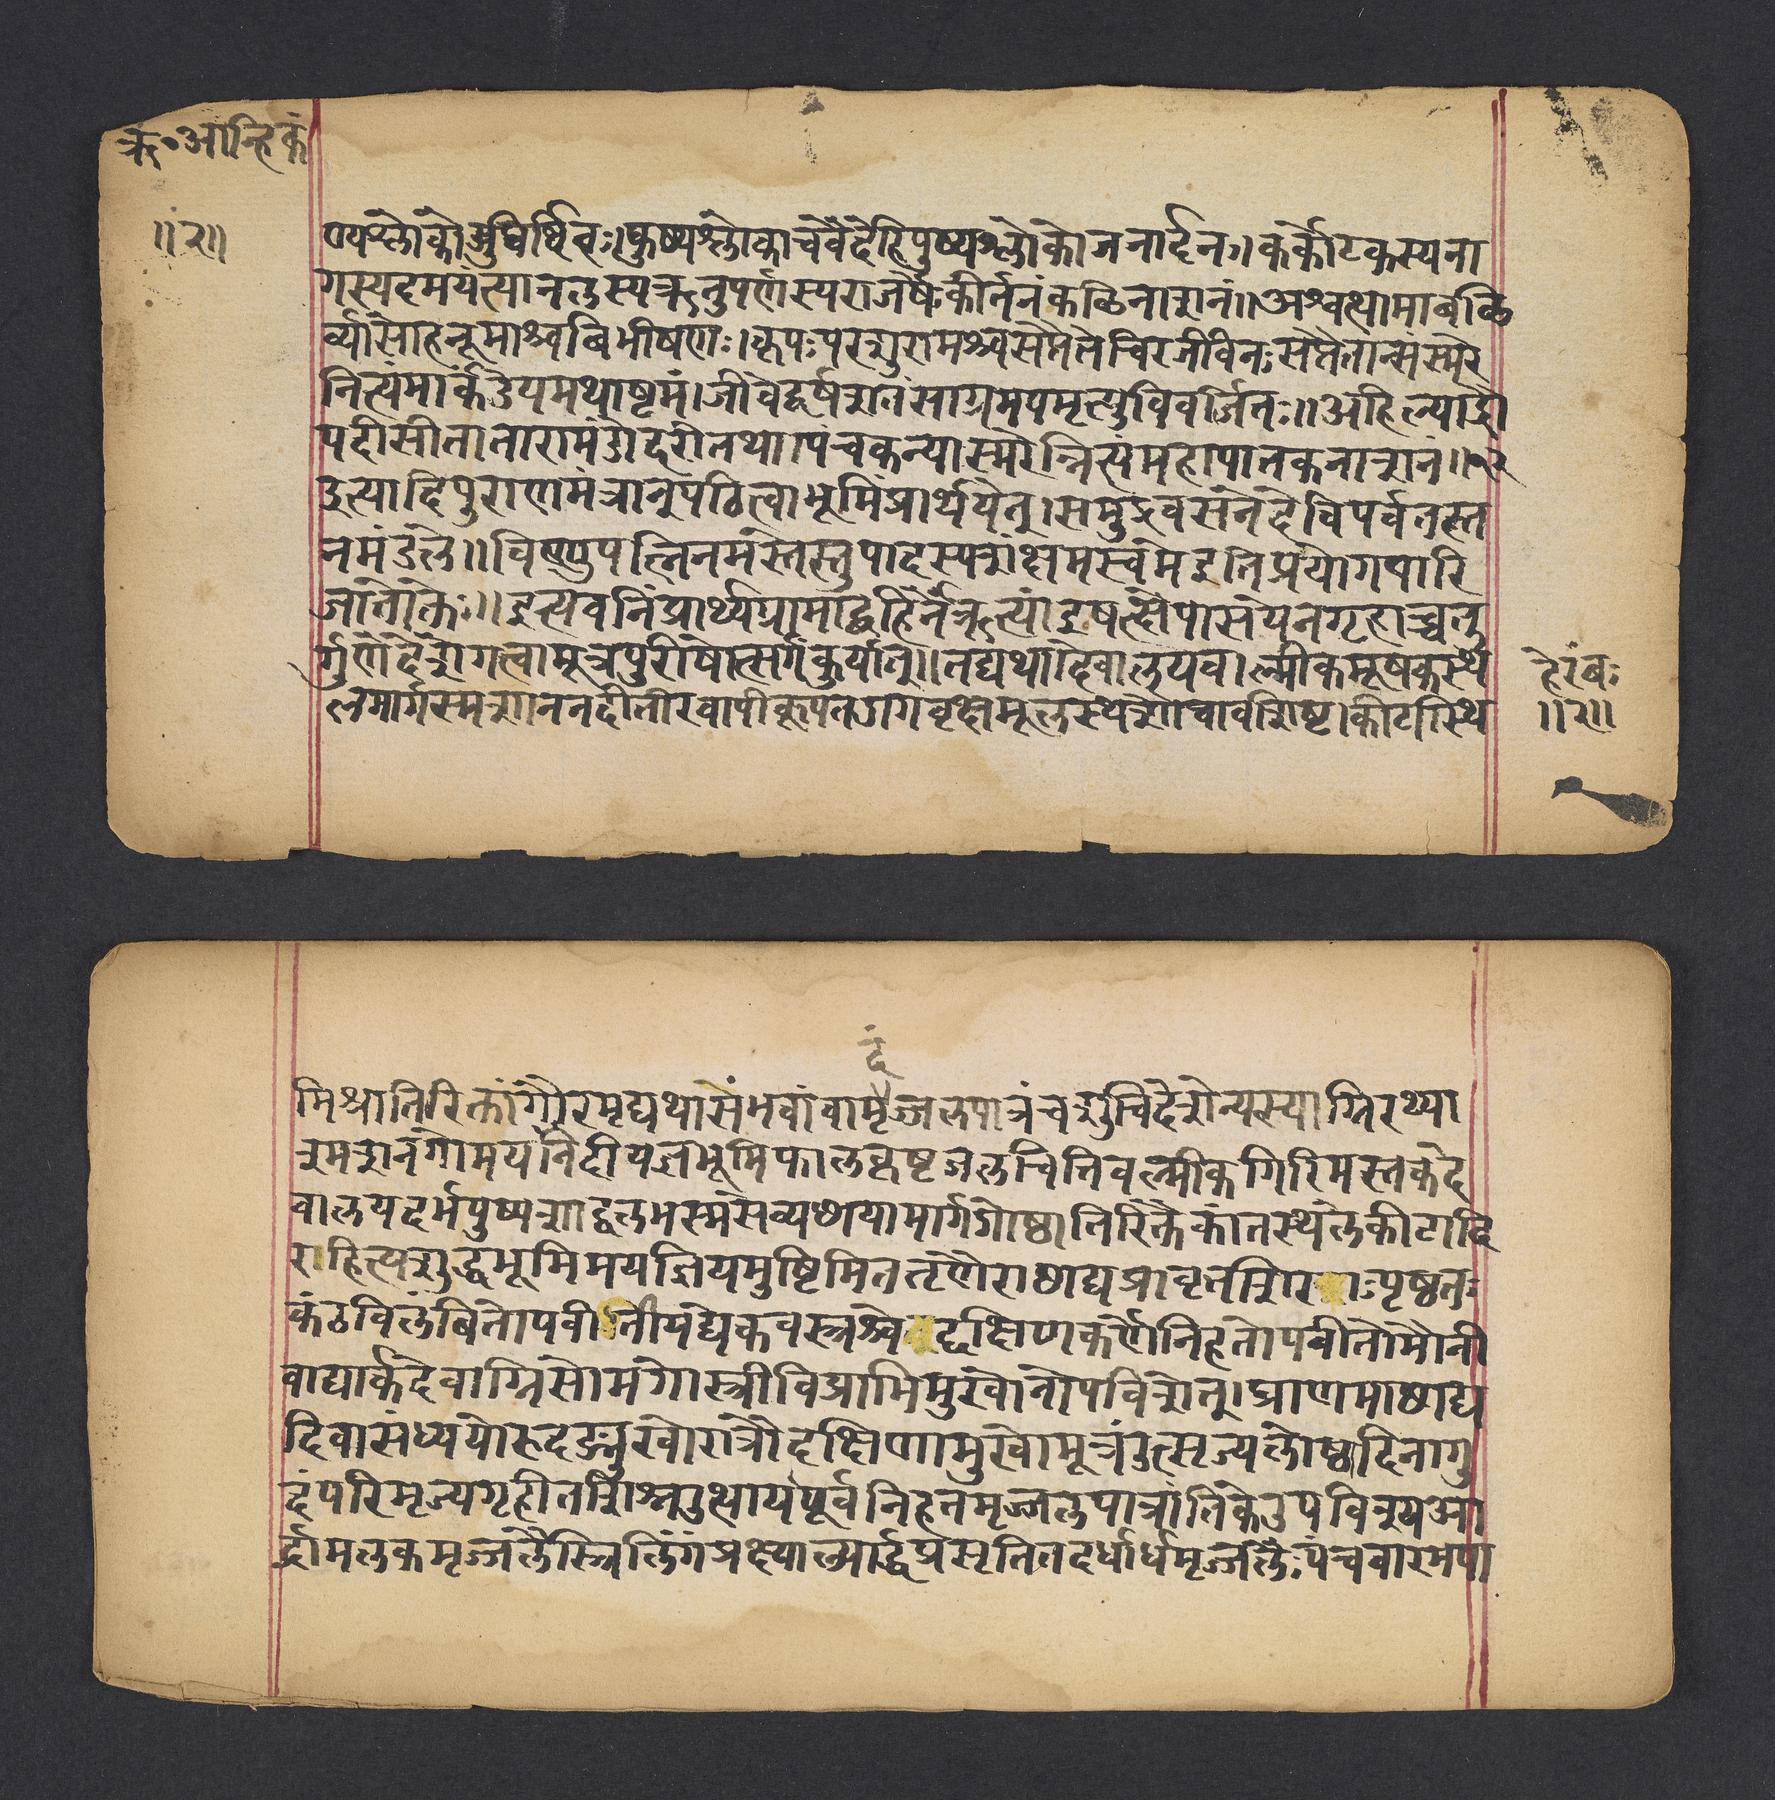 ऋ॰आन्हिकं
॥२॥
ण्यश्लोको युधिष्ठिरः।पुण्यश्लोकाचवैदेहिपुण्यश्लोकोजनार्दनः।कर्कोटकस्यना
गस्यदमयंत्यानलस्यऋतुपर्णस्यराजर्षेःकीर्तनंकळिनाशनं॥अश्वत्थामाबळि
र्व्यासोहनूमाश्चबिभीषणः।कृपःपरशुरामश्चसप्तैतेचिरजीविनःसप्तैतान्सस्मरे
नित्यंमार्कंडेयमथाष्टमं।जीवेद्वर्षशतंसाग्रमपमृत्युविवर्जितः॥अहिल्याद्रौ
पदीसीतातारामंडोदरीतथा।पंचकन्यास्मरेन्नित्यंमहापातकनाशनं॥१२
इत्यादिपुराणमंत्रानुपठित्वाभूमिंप्रार्थयेत्।समुद्रवसनेदेविपर्वतस्त
नमंडले॥विष्णुपत्निनमस्तेस्तुपादस्पर्शंक्षमस्वमेइतिप्रयोगपारि
जातोक्तः॥इत्यवनिंप्रार्थ्यग्रामाद्बहिर्नैऋत्यांइषत्क्षेपासंयनगृहाच्चतु
र्गुणेदेशेगत्वामूत्रपुरीषोत्सर्गंकुर्यात्॥तद्यथादेवालयव।ल्मीकमूषकस्थ
लमार्गस्मशाननदीतीरवापीकूपतडागवृक्षमूलस्थशौचावशिष्ट।कीटास्थि
हेरंबः
॥२॥
दं
मिश्रातिरिक्तांगौरमृद्यथासंभवांवामृज्जलपात्रंचशुचिदेशेन्यस्याग्निरथ्या
श्मशानगोमयनदीयज्ञभूमिफालकृष्टजलचितिवल्मीकगिरिमस्तकदे
वालयदर्भपुष्पशाद्वलभस्मसव्यछायामार्गगोष्ठातिरिक्तैकांतस्थलेकीटादि
राहित्यशुद्धभूमिमयज्ञियमुष्टिमिततृणैराछाद्यप्रावृतशिराःपृष्ठतः
कंठविलंबितोपवीतीयद्येकवस्त्रश्चेद्दक्षिणकर्णेनिहतोपवीतोमौनी
वाद्यार्कदेवाग्निसोमगोस्त्रीविप्राभिमुखोनोपविशेत्।घ्राणमाछाद्य
दिवासंध्ययोरुदङ्मुखोरात्रौदक्षिणामुखोमूत्रंउत्सृज्यलोष्ठादिनागु
दंपरिमृज्यगृहीतशिश्नउत्थायपूर्वनिहतमृज्जलपात्रांतिकेउपविश्यआ
र्द्रामलकमृज्जलैस्त्रिर्लिंगंप्रक्ष्याल्यार्द्धप्रसृतितदर्धार्धमृज्जलैःपंचवारमपा